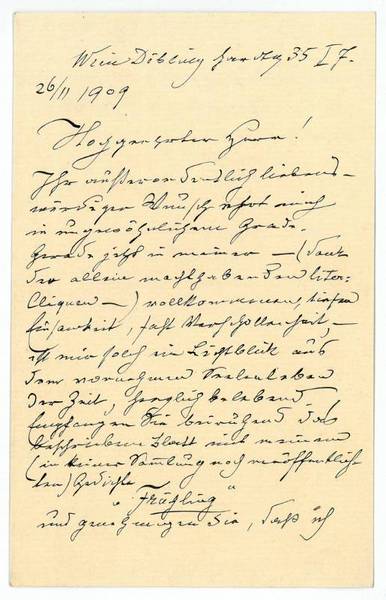 Wien Döbling Hardtg 35 I 7.
26/11 1909
Hochgeehrter Herr!
Ihr außerordentlich liebens-
würdiger Wunsch ehrt mich
in ungewöhnlichem Grade.
Gerade jetzt in meiner — (dank
der allein machthabenden liter-
Cliquen —) vollkommenen, tiefen
Einsamkeit, fast Verschollenheit, —
ist mir solch ein Lichtblick aus
dem vornehmen Seelenleben
der Zeit, herzlich belebend.
Empfangen Sie beiruhend das
beschriebene Blatt mit meinem
(in keiner Samlung noch veröffentlich-
ten) Gedichte
„Frühling“
und genehmigen Sie, daß ich